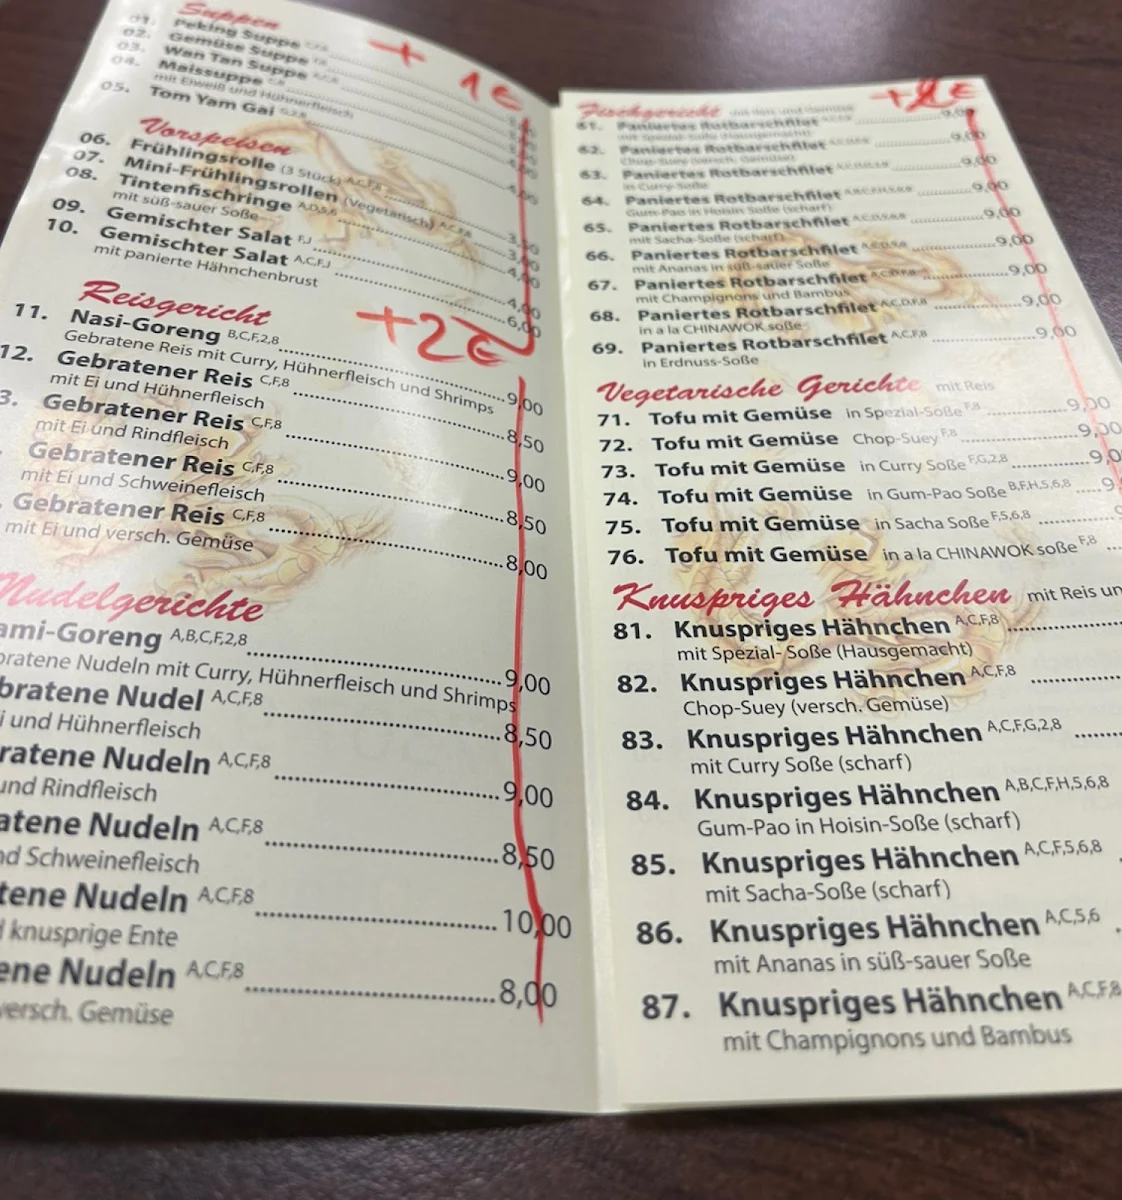 Suppen
+ 1€
01. Peking Suppe
02. Gemüse Suppe
03. Wan Tan Suppe
04. Maissuppe
mit Eiweiß und Hühnerfleisch
05. Tom Yam Gai
Vorspeisen
06. Frühlingsrolle (3 Stück) A,C,F,8 3,50
07. Mini-Frühlingsrollen (Vegetarisch) A,C,F,8
08. Tintenfischringe A,D,5,6
mit süß-sauer Soße
09. Gemischter Salat F,J 4,00
10. Gemischter Salat A,C,F,J 6,00
mit panierte Hähnchenbrust
+2€
Reisgericht
11. Nasi-Goreng B,C,F,2,8 9,00
Gebratene Reis mit Curry, Hühnerfleisch und Shrimps
12. Gebratener Reis C,F,8 8,50
mit Ei und Hühnerfleisch
3. Gebratener Reis C,F,8 9,00
mit Ei und Rindfleisch
. Gebratener Reis C,F,8 8,50
mit Ei und Schweinefleisch
. Gebratener Reis C,F,8 8,00
mit Ei und versch. Gemüse
Nudelgerichte
ami-Goreng A,B,C,F,2,8 9,00
bratene Nudeln mit Curry, Hühnerfleisch und Shrimps
bratene Nudel A,C,F,8 8,50
i und Hühnerfleisch
ratene Nudeln A,C,F,8 9,00
und Rindfleisch
atene Nudeln A,C,F,8 8,50
nd Schweinefleisch
tene Nudeln A,C,F,8 10,00
d knusprige Ente
ene Nudeln A,C,F,8 8,00
versch. Gemüse
+2€
Fischgericht mit Reis und Gemüse
61. Paniertes Rotbarschfilet 9,00
mit Spezial-Soße (Hausgemacht)
62. Paniertes Rotbarschfilet 9,00
Chop-Suey (versch. Gemüse)
63. Paniertes Rotbarschfilet 9,00
in Curry-Soße
64. Paniertes Rotbarschfilet 9,00
Gum-Pao in Hoisin Soße (scharf)
65. Paniertes Rotbarschfilet 9,00
mit Sacha-Soße (scharf)
66. Paniertes Rotbarschfilet 9,00
mit Ananas in süß-sauer Soße
67. Paniertes Rotbarschfilet A,C,D,F,8 9,00
mit Champignons und Bambus
68. Paniertes Rotbarschfilet A,C,D,F,8 9,00
in a la CHINAWOK soße
69. Paniertes Rotbarschfilet A,C,F,8 9,00
in Erdnuss-Soße
Vegetarische Gerichte mit Reis
71. Tofu mit Gemüse in Spezial-Soße F,8 9,00
72. Tofu mit Gemüse Chop-Suey F,8 9,00
73. Tofu mit Gemüse in Curry Soße F,G,2,8 9,0
74. Tofu mit Gemüse in Gum-Pao Soße B,F,H,5,6,8 9,
75. Tofu mit Gemüse in Sacha Soße F,5,6,8 9
76. Tofu mit Gemüse in a la CHINAWOK soße F,8
Knuspriges Hähnchen mit Reis un
81. Knuspriges Hähnchen A,C,F,8
mit Spezial- Soße (Hausgemacht)
82. Knuspriges Hähnchen A,C,F,8
Chop-Suey (versch. Gemüse)
83. Knuspriges Hähnchen A,C,F,G,2,8
mit Curry Soße (scharf)
84. Knuspriges Hähnchen A,B,C,F,H,5,6,8
Gum-Pao in Hoisin-Soße (scharf)
85. Knuspriges Hähnchen A,C,F,5,6,8
mit Sacha-Soße (scharf)
86. Knuspriges Hähnchen A,C,5,6
mit Ananas in süß-sauer Soße
87. Knuspriges Hähnchen A,C,F,8
mit Champignons und Bambus